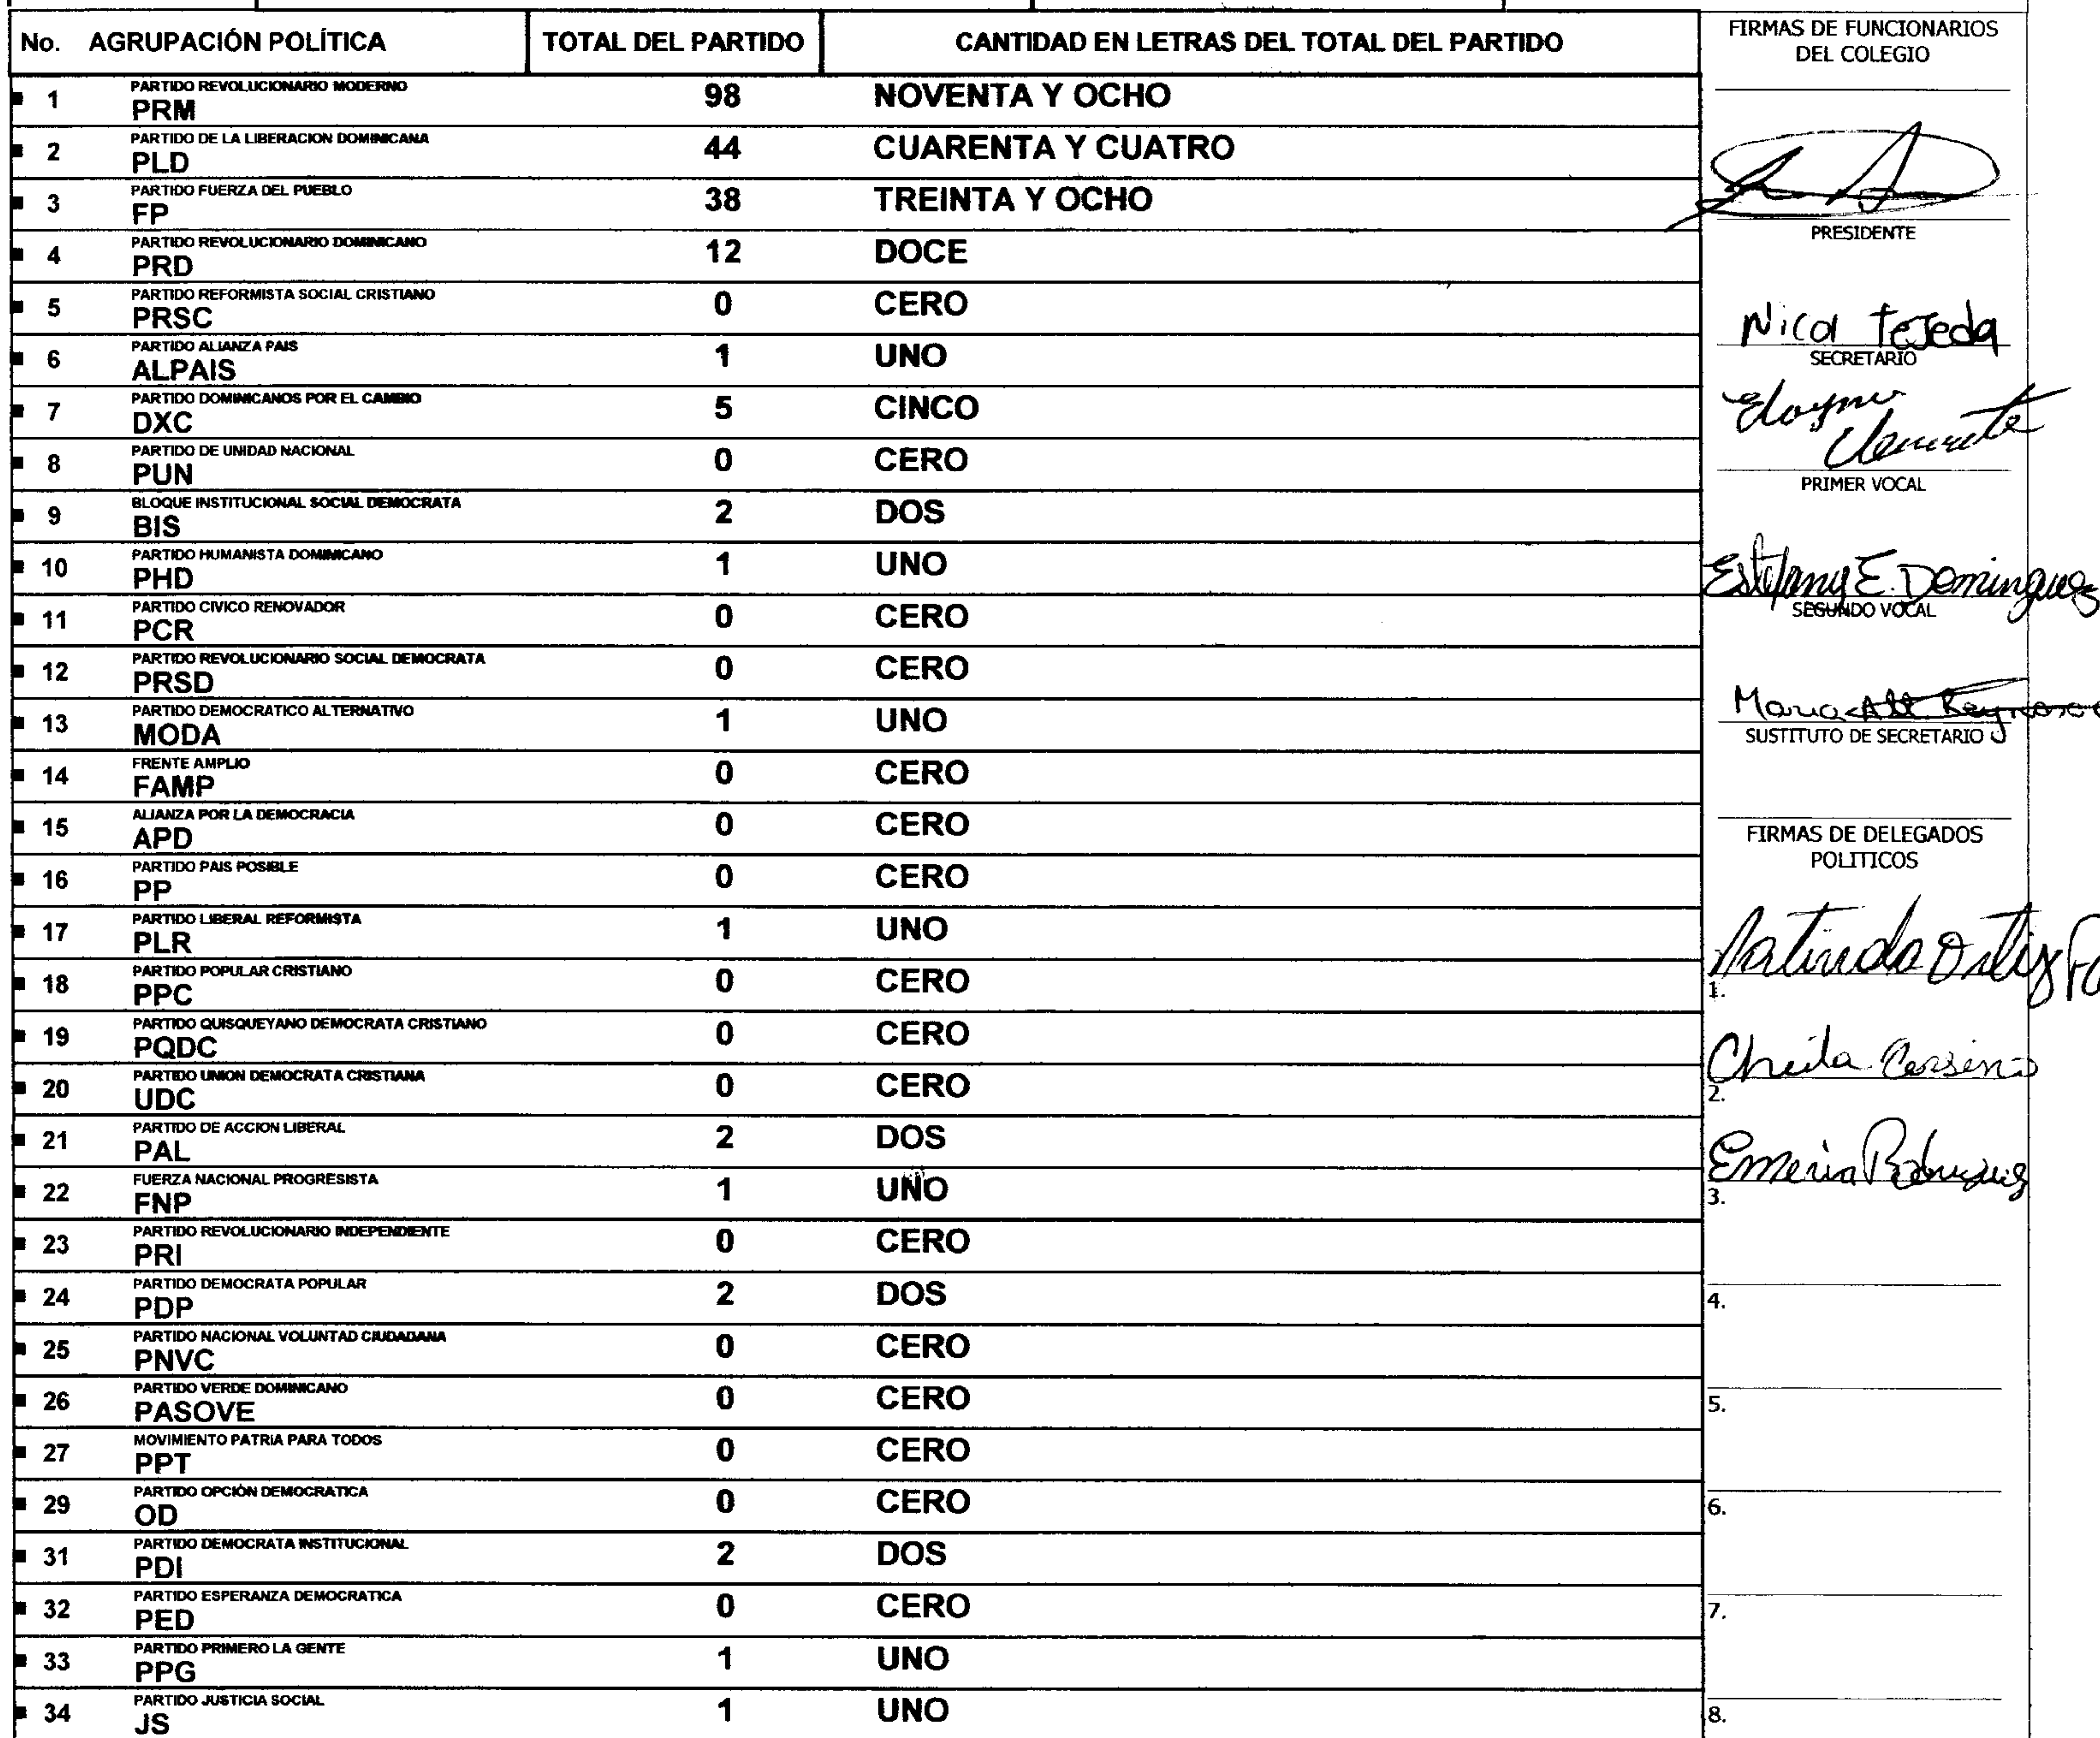 No. AGRUPACIÓN POLÍTICA TOTAL DEL PARTIDO CANTIDAD EN LETRAS DEL TOTAL DEL PARTIDO
1 PARTIDO REVOLUCIONARIO MODERNO
PRM 98 NOVENTA Y OCHO
2 PARTIDO DE LA LIBERACION DOMINICANA
PLD 44 CUARENTA Y CUATRO
3 PARTIDO FUERZA DEL PUEBLO
FP 38 TREINTA Y OCHO
4 PARTIDO REVOLUCIONARIO DOMINICANO
PRD 12 DOCE
5 PARTIDO REFORMISTA SOCIAL CRISTIANO
PRSC 0 CERO
6 PARTIDO ALIANZA PAIS
ALPAIS 1 UNO
7 PARTIDO DOMINICANOS POR EL CAMBIO
DXC 5 CINCO
8 PARTIDO DE UNIDAD NACIONAL
PUN 0 CERO
9 BLOQUE INSTITUCIONAL SOCIAL DEMOCRATA
BIS 2 DOS
10 PARTIDO HUMANISTA DOMINICANO
PHD 1 UNO
11 PARTIDO CIVICO RENOVADOR
PCR 0 CERO
12 PARTIDO REVOLUCIONARIO SOCIAL DEMOCRATA
PRSD 0 CERO
13 PARTIDO DEMOCRATICO ALTERNATIVO
MODA 1 UNO
14 FRENTE AMPLIO
FAMP 0 CERO
15 ALIANZA POR LA DEMOCRACIA
APD 0 CERO
16 PARTIDO PAIS POSIBLE
PP 0 CERO
17 PARTIDO LIBERAL REFORMISTA
PLR 1 UNO
18 PARTIDO POPULAR CRISTIANO
PPC 0 CERO
19 PARTIDO QUISQUEYANO DEMOCRATA CRISTIANO
PQDC 0 CERO
20 PARTIDO UNION DEMOCRATA CRISTIANA
UDC 0 CERO
21 PARTIDO DE ACCION LIBERAL
PAL 2 DOS
22 FUERZA NACIONAL PROGRESISTA
FNP 1 UNO
23 PARTIDO REVOLUCIONARIO INDEPENDIENTE
PRI 0 CERO
24 PARTIDO DEMOCRATA POPULAR
PDP 2 DOS
25 PARTIDO NACIONAL VOLUNTAD CIUDADANA
PNVC 0 CERO
26 PARTIDO VERDE DOMINICANO
PASOVE 0 CERO
27 MOVIMIENTO PATRIA PARA TODOS
PPT 0 CERO
29 PARTIDO OPCIÓN DEMOCRATICA
OD 0 CERO
31 PARTIDO DEMOCRATA INSTITUCIONAL
PDI 2 DOS
32 PARTIDO ESPERANZA DEMOCRATICA
PED 0 CERO
33 PARTIDO PRIMERO LA GENTE
PPG 1 UNO
34 PARTIDO JUSTICIA SOCIAL
JS 1 UNO
FIRMAS DE FUNCIONARIOS
DEL COLEGIO
PRESIDENTE
Nicol Tejeda
SECRETARIO
PRIMER VOCAL
Estefany E. Dominguez
SEGUNDO VOCAL
Maria Alt Reynoso
SUSTITUTO DE SECRETARIO
FIRMAS DE DELEGADOS
POLITICOS
Ortiz
1.
Cheila
2.
Emeria Rodriguez
3.
4.
5.
6.
7.
8.